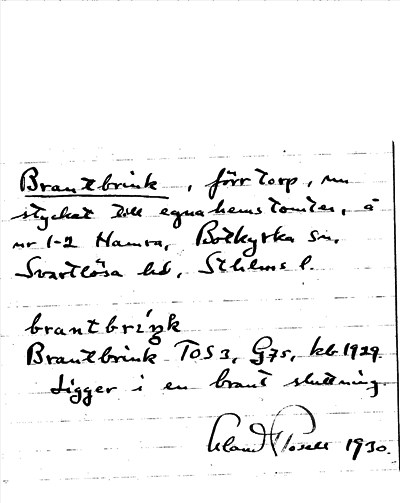 Brantbrink, förr torp, nu
stycket till egnahemstomter, å
nr 1-2 Hamra, Botkyrka sn,
Svartlösa hd, Sthlms l.
brantbriŋk
Brantbrink TOS 3, G75, kb 1929.
Ligger i en brant sluttning.
1930.